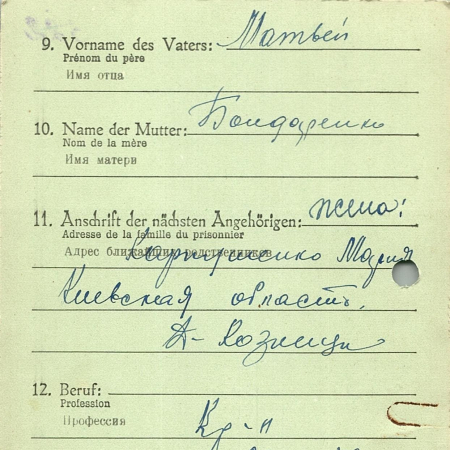 9. Vorname des Vaters: Матвей
Prénom du père
Имя отца
10. Name der Mutter: Бондаренко
Nom de la mère
Имя матери
11. Anschrift der nächsten Angehörigen: жена:
Adresse de la famille du prisonnier
Адрес ближайших родственников Мария
Киевская область.
12. Beruf:
Profession
Профессия